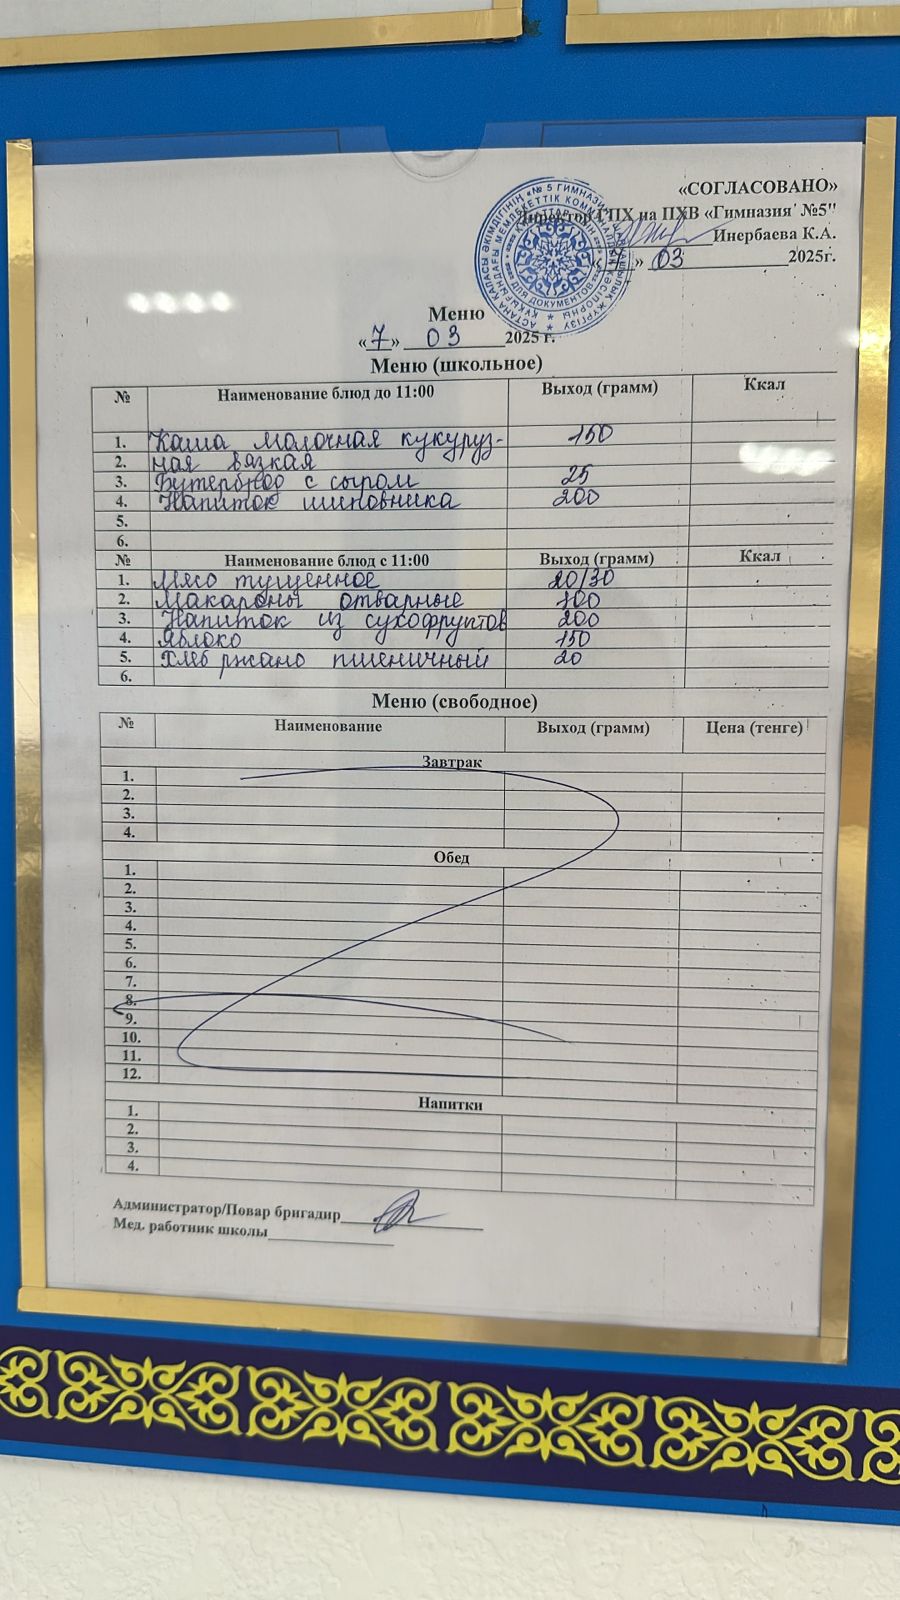 «СОГЛАСОВАНО»
Директор ГПХ на ПХВ «Гимназия №5"
Инербаева К.А.
« 7 » 03 2025г.
Меню
«7» 03 2025 г.
Меню (школьное)
№ Наименование блюд до 11:00 Выход (грамм) Ккал
1. Каша молочная кукуруз- 150
2. ная вязкая
3. Бутерброд с сыром 25
4. Напиток шиповника 200
5.
6.
№ Наименование блюд с 11:00 Выход (грамм) Ккал
1. Мясо тущенное 20/30
2. Макароны отварные 100
3. Напиток из сухофруктов 200
4. Яблоко 150
5. Хлеб ржано пшеничный 20
6.
Меню (свободное)
№ Наименование Выход (грамм) Цена (тенге)
Завтрак
1.
2.
3.
4.
Обед
1.
2.
3.
4.
5.
6.
7.
8.
9.
10.
11.
12.
Напитки
1.
2.
3.
4.
Администратор/Повар бригадир
Мед. работник школы